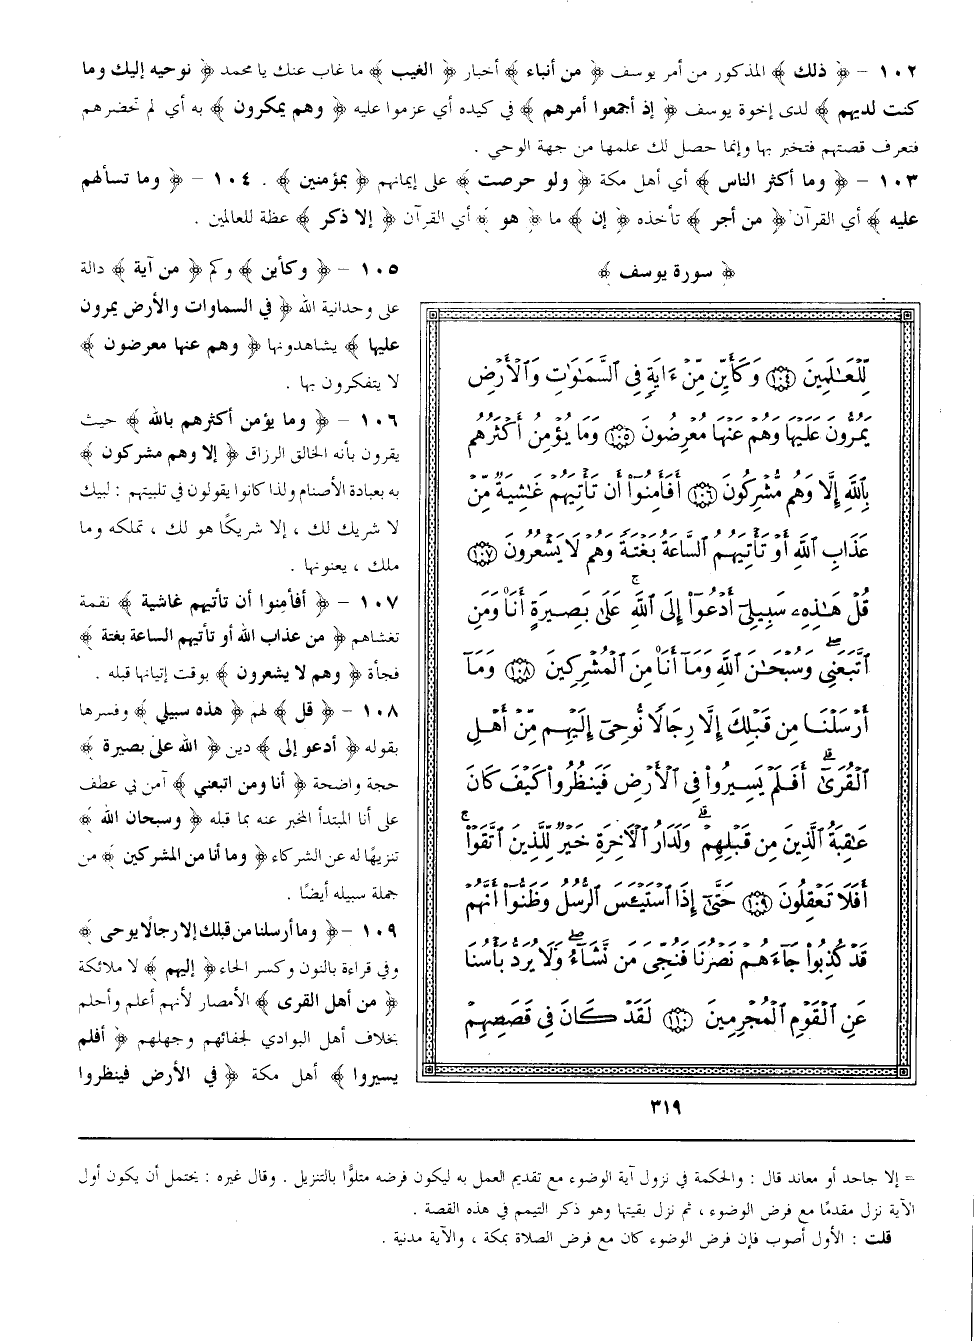 ١٠٢ - ﴿ ذلك ﴾ المذكور من أمر يوسف ﴿ من أنباء ﴾ أخبار ﴿ الغيب ﴾ ما غاب عنك يا محمد ﴿ نوحيه إليك وما
كنت لديهم ﴾ لدى إخوة يوسف ﴿ إذ أجمعوا أمرهم ﴾ في كيده أي عزموا عليه ﴿ وهم يمكرون ﴾ به أي لم تحضرهم
فتعرف قصتهم فتخبر بها وإنما حصل لك علمها من جهة الوحي .
١٠٣ - ﴿ وما أكثر الناس ﴾ أي أهل مكة ﴿ ولو حرصت ﴾ على إيمانهم ﴿ بمؤمنين ﴾ . ١٠٤ - ﴿ وما تسألهم
عليه ﴾ أي القرآن ﴿ من أجر ﴾ تأخذه ﴿ إن ﴾ ما ﴿ هو ﴾ أي القرآن ﴿ إلا ذكر ﴾ عظة للعالمين .
﴿ سورة يوسف ﴾
لِّلْعَٰلَمِينَ ١٠٤ وَكَأَيِّن مِّنْ ءَايَةٍ فِى ٱلسَّمَٰوَٰتِ وَٱلْأَرْضِ
يَمُرُّونَ عَلَيْهَا وَهُمْ عَنْهَا مُعْرِضُونَ ١٠٥ وَمَا يُؤْمِنُ أَكْثَرُهُم
بِٱللَّهِ إِلَّا وَهُم مُّشْرِكُونَ ١٠٦ أَفَأَمِنُوٓا۟ أَن تَأْتِيَهُمْ غَٰشِيَةٌ مِّنْ
عَذَابِ ٱللَّهِ أَوْ تَأْتِيَهُمُ ٱلسَّاعَةُ بَغْتَةً وَهُمْ لَا يَشْعُرُونَ ١٠٧
قُلْ هَٰذِهِۦ سَبِيلِىٓ أَدْعُوٓا۟ إِلَى ٱللَّهِ ۚ عَلَىٰ بَصِيرَةٍ أَنَا۠ وَمَنِ
ٱتَّبَعَنِى ۖ وَسُبْحَٰنَ ٱللَّهِ وَمَآ أَنَا۠ مِنَ ٱلْمُشْرِكِينَ ١٠٨ وَمَآ
أَرْسَلْنَا مِن قَبْلِكَ إِلَّا رِجَالًا نُّوحِىٓ إِلَيْهِم مِّنْ أَهْلِ
ٱلْقُرَىٰٓ ۗ أَفَلَمْ يَسِيرُوا۟ فِى ٱلْأَرْضِ فَيَنظُرُوا۟ كَيْفَ كَانَ
عَٰقِبَةُ ٱلَّذِينَ مِن قَبْلِهِمْ ۗ وَلَدَارُ ٱلْأَخِرَةِ خَيْرٌ لِّلَّذِينَ ٱتَّقَوْا۟ ۚ
أَفَلَا تَعْقِلُونَ ١٠٩ حَتَّىٰٓ إِذَا ٱسْتَيْـَٔسَ ٱلرُّسُلُ وَظَنُّوٓا۟ أَنَّهُمْ
قَدْ كُذِبُوا۟ جَآءَهُمْ نَصْرُنَا فَنُجِّىَ مَن نَّشَآءُ ۖ وَلَا يُرَدُّ بَأْسُنَا
عَنِ ٱلْقَوْمِ ٱلْمُجْرِمِينَ ١١٠ لَقَدْ كَانَ فِى قَصَصِهِمْ
٣١٩
١٠٥ - ﴿ وكأين ﴾ وكم ﴿ من آية ﴾ دالة
على وحدانية الله ﴿ في السماوات والأرض يمرون
عليها ﴾ يشاهدونها ﴿ وهم عنها معرضون ﴾
لا يتفكرون بها .
١٠٦ - ﴿ وما يؤمن أكثرهم بالله ﴾ حيث
يقرون بأنه الخالق الرزاق ﴿ إلا وهم مشركون ﴾
به بعبادة الأصنام ولذا كانوا يقولون في تلبيتهم : لبيك
لا شريك لك ، إلا شريكًا هو لك ، تملكه وما
ملك ، يعنونها .
١٠٧ - ﴿ أفأمنوا أن تأتيهم غاشية ﴾ نقمة
تغشاهم ﴿ من عذاب الله أو تأتيهم الساعة بغتة ﴾
فجأة ﴿ وهم لا يشعرون ﴾ بوقت إتيانها قبله .
١٠٨ - ﴿ قل ﴾ لهم ﴿ هذه سبيلي ﴾ وفسرها
بقوله ﴿ أدعو إلى ﴾ دين ﴿ الله على بصيرة ﴾
حجة واضحة ﴿ أنا ومن اتبعني ﴾ آمن بي عطف
على أنا المبتدأ المخبر عنه بما قبله ﴿ وسبحان الله ﴾
تنزيهًا له عن الشركاء ﴿ وما أنا من المشركين ﴾ من
جملة سبيله أيضًا .
١٠٩ - ﴿ وما أرسلنا من قبلك إلا رجالًا يوحى ﴾
وفي قراءة بالنون وكسر الحاء ﴿ إليهم ﴾ لا ملائكة
﴿ من أهل القرى ﴾ الأمصار لأنهم أعلم وأحلم
بخلاف أهل البوادي لجفائهم وجهلهم ﴿ أفلم
يسيروا ﴾ أهل مكة ﴿ في الأرض فينظروا
= إلا جاحد أو معاند قال : والحكمة في نزول آية الوضوء مع تقديم العمل به ليكون فرضه متلوًّا بالتنزيل . وقال غيره : يحتمل أن يكون أول
الآية نزل مقدمًا مع فرض الوضوء ، ثم نزل بقيتها وهو ذكر التيمم في هذه القصة .
قلت : الأول أصوب فإن فرض الوضوء كان مع فرض الصلاة بمكة ، والآية مدنية .